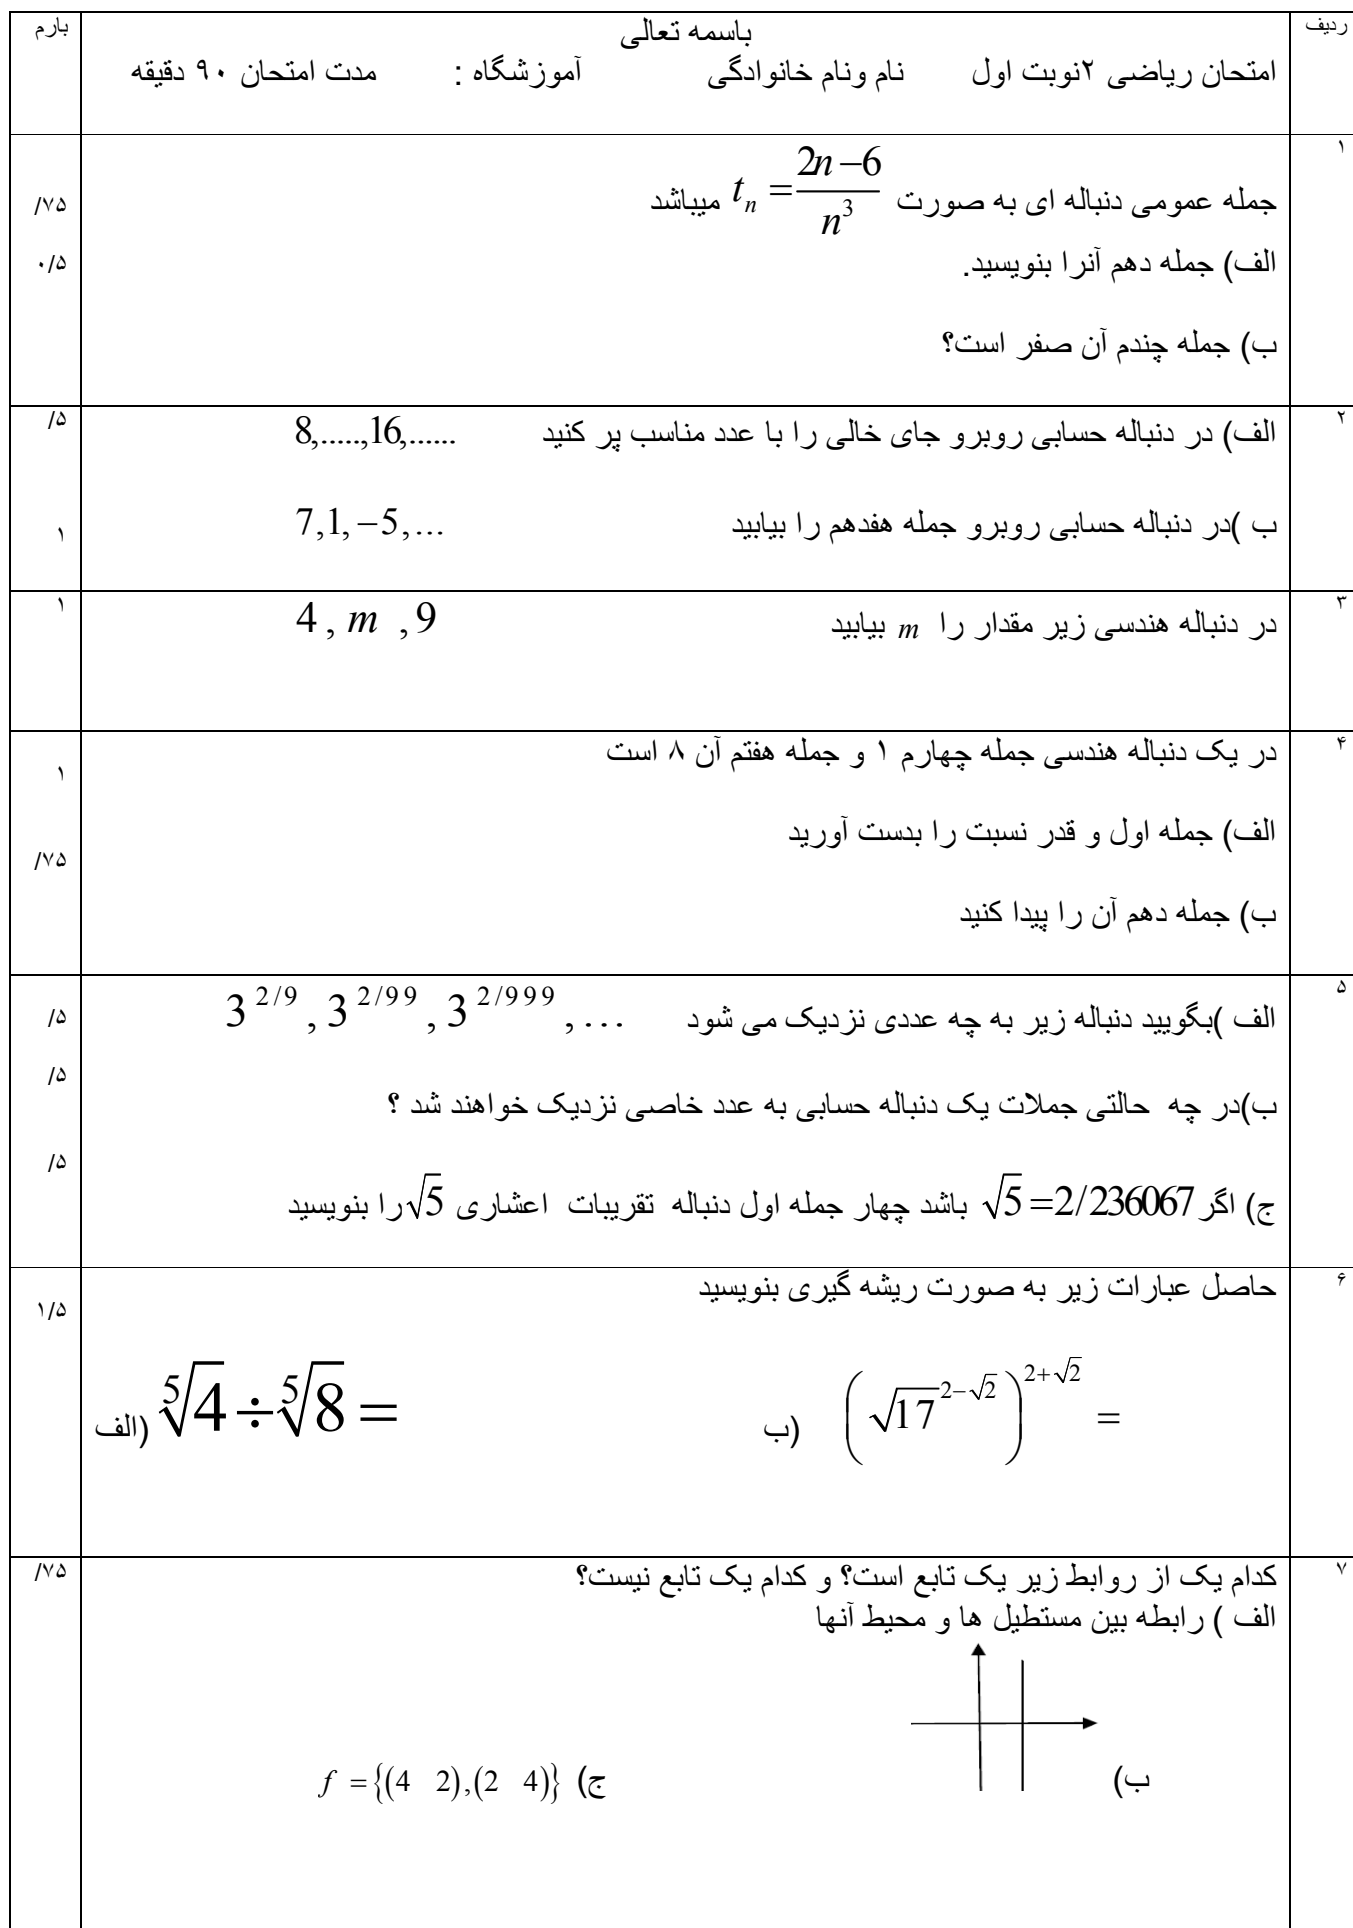 ردیف
باسمه تعالی
بارم
امتحان ریاضی ۲نوبت اول نام ونام خانوادگی آموزشگاه : مدت امتحان ۹۰ دقیقه
۱
جمله عمومی دنباله ای به صورت t_n = (2n−6)/n^3 میباشد
/۷۵
الف) جمله دهم آنرا بنویسید.
۰/۵
ب) جمله چندم آن صفر است؟
۲
الف) در دنباله حسابی روبرو جای خالی را با عدد مناسب پر کنید 8,.....,16,......
/۵
ب )در دنباله حسابی روبرو جمله هفدهم را بیابید 7,1,−5,...
۱
۳
در دنباله هندسی زیر مقدار را m بیابید 4 , m , 9
۱
۴
در یک دنباله هندسی جمله چهارم ۱ و جمله هفتم آن ۸ است
۱
الف) جمله اول و قدر نسبت را بدست آورید
/۷۵
ب) جمله دهم آن را پیدا کنید
۵
الف )بگویید دنباله زیر به چه عددی نزدیک می شود 3^{2/9} , 3^{2/99} , 3^{2/999} , ...
/۵
ب)در چه حالتی جملات یک دنباله حسابی به عدد خاصی نزدیک خواهند شد ؟
/۵
ج) اگر √5 =2/236067 باشد چهار جمله اول دنباله تقریبات اعشاری √5 را بنویسید
/۵
۶
حاصل عبارات زیر به صورت ریشه گیری بنویسید
۱/۵
الف) ⁵√4 ÷ ⁵√8 = ب) (√17^{2−√2})^{2+√2} =
۷
کدام یک از روابط زیر یک تابع است؟ و کدام یک تابع نیست؟
/۷۵
الف ) رابطه بین مستطیل ها و محیط آنها
ب) ج) f = {(4 2),(2 4)}